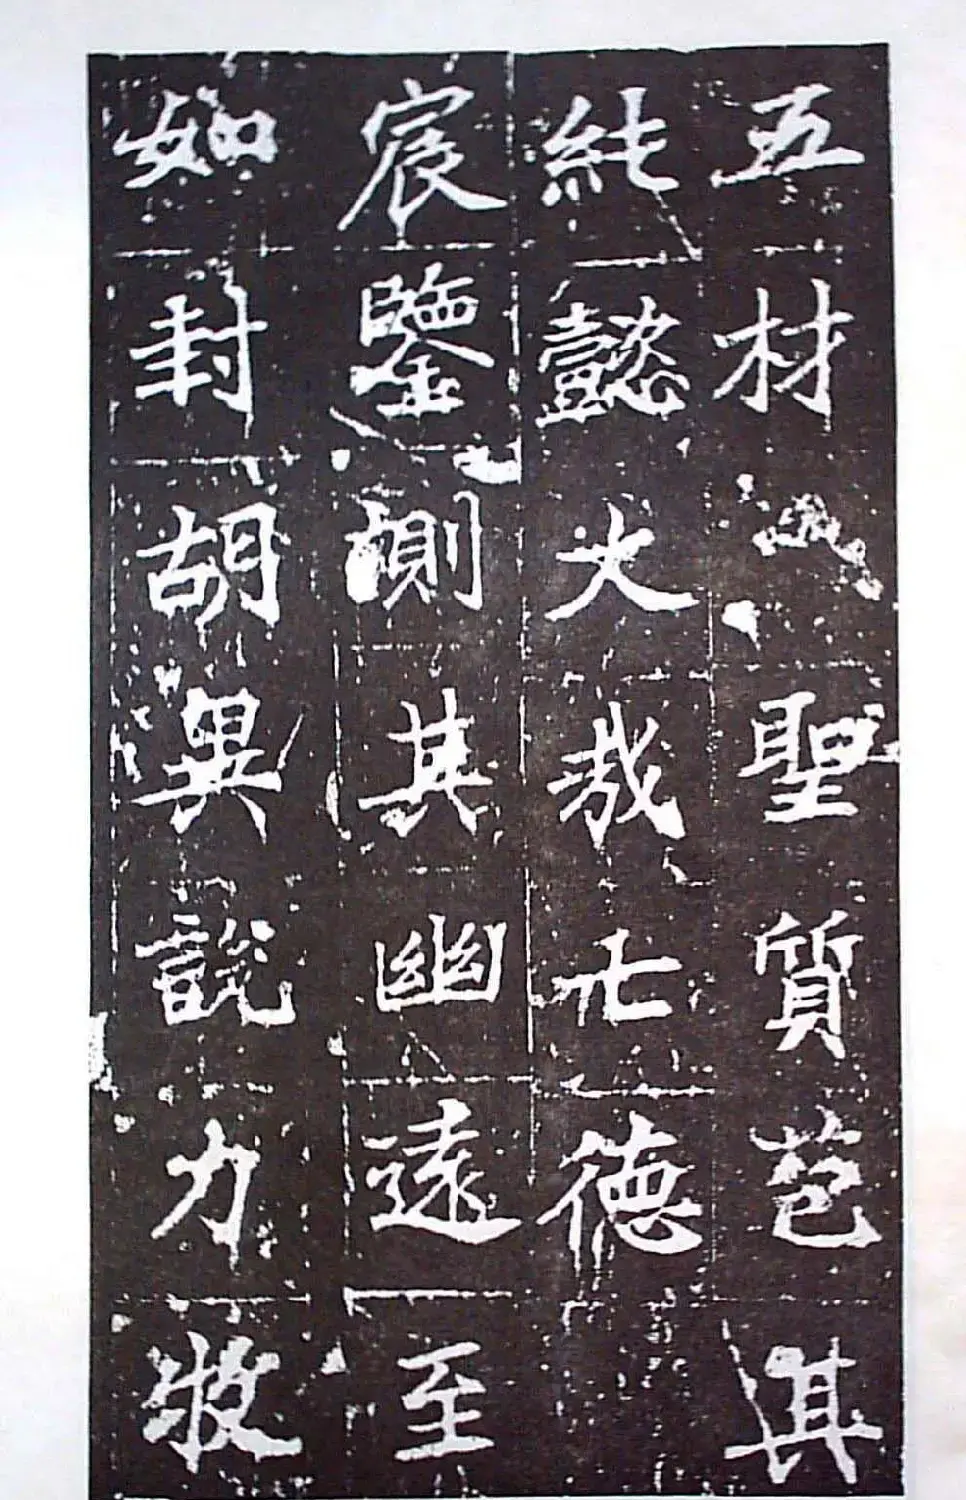 五材聖質苞其
純懿大哉七德
宸鑒測其幽遠至
如封胡異說力牧